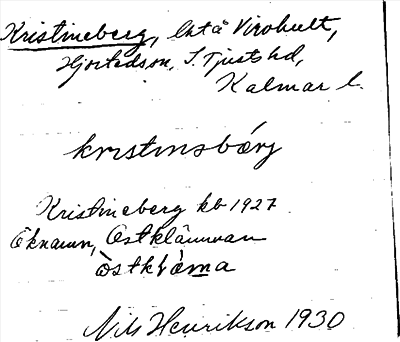 Kristineberg, lht å Virohult,
Hjortedson, S. Tjusts hd,
Kalmar l.
kristinsbærj
Kristineberg kb 1927
Öknamn, Ostklämman
Nils Henrikson 1930